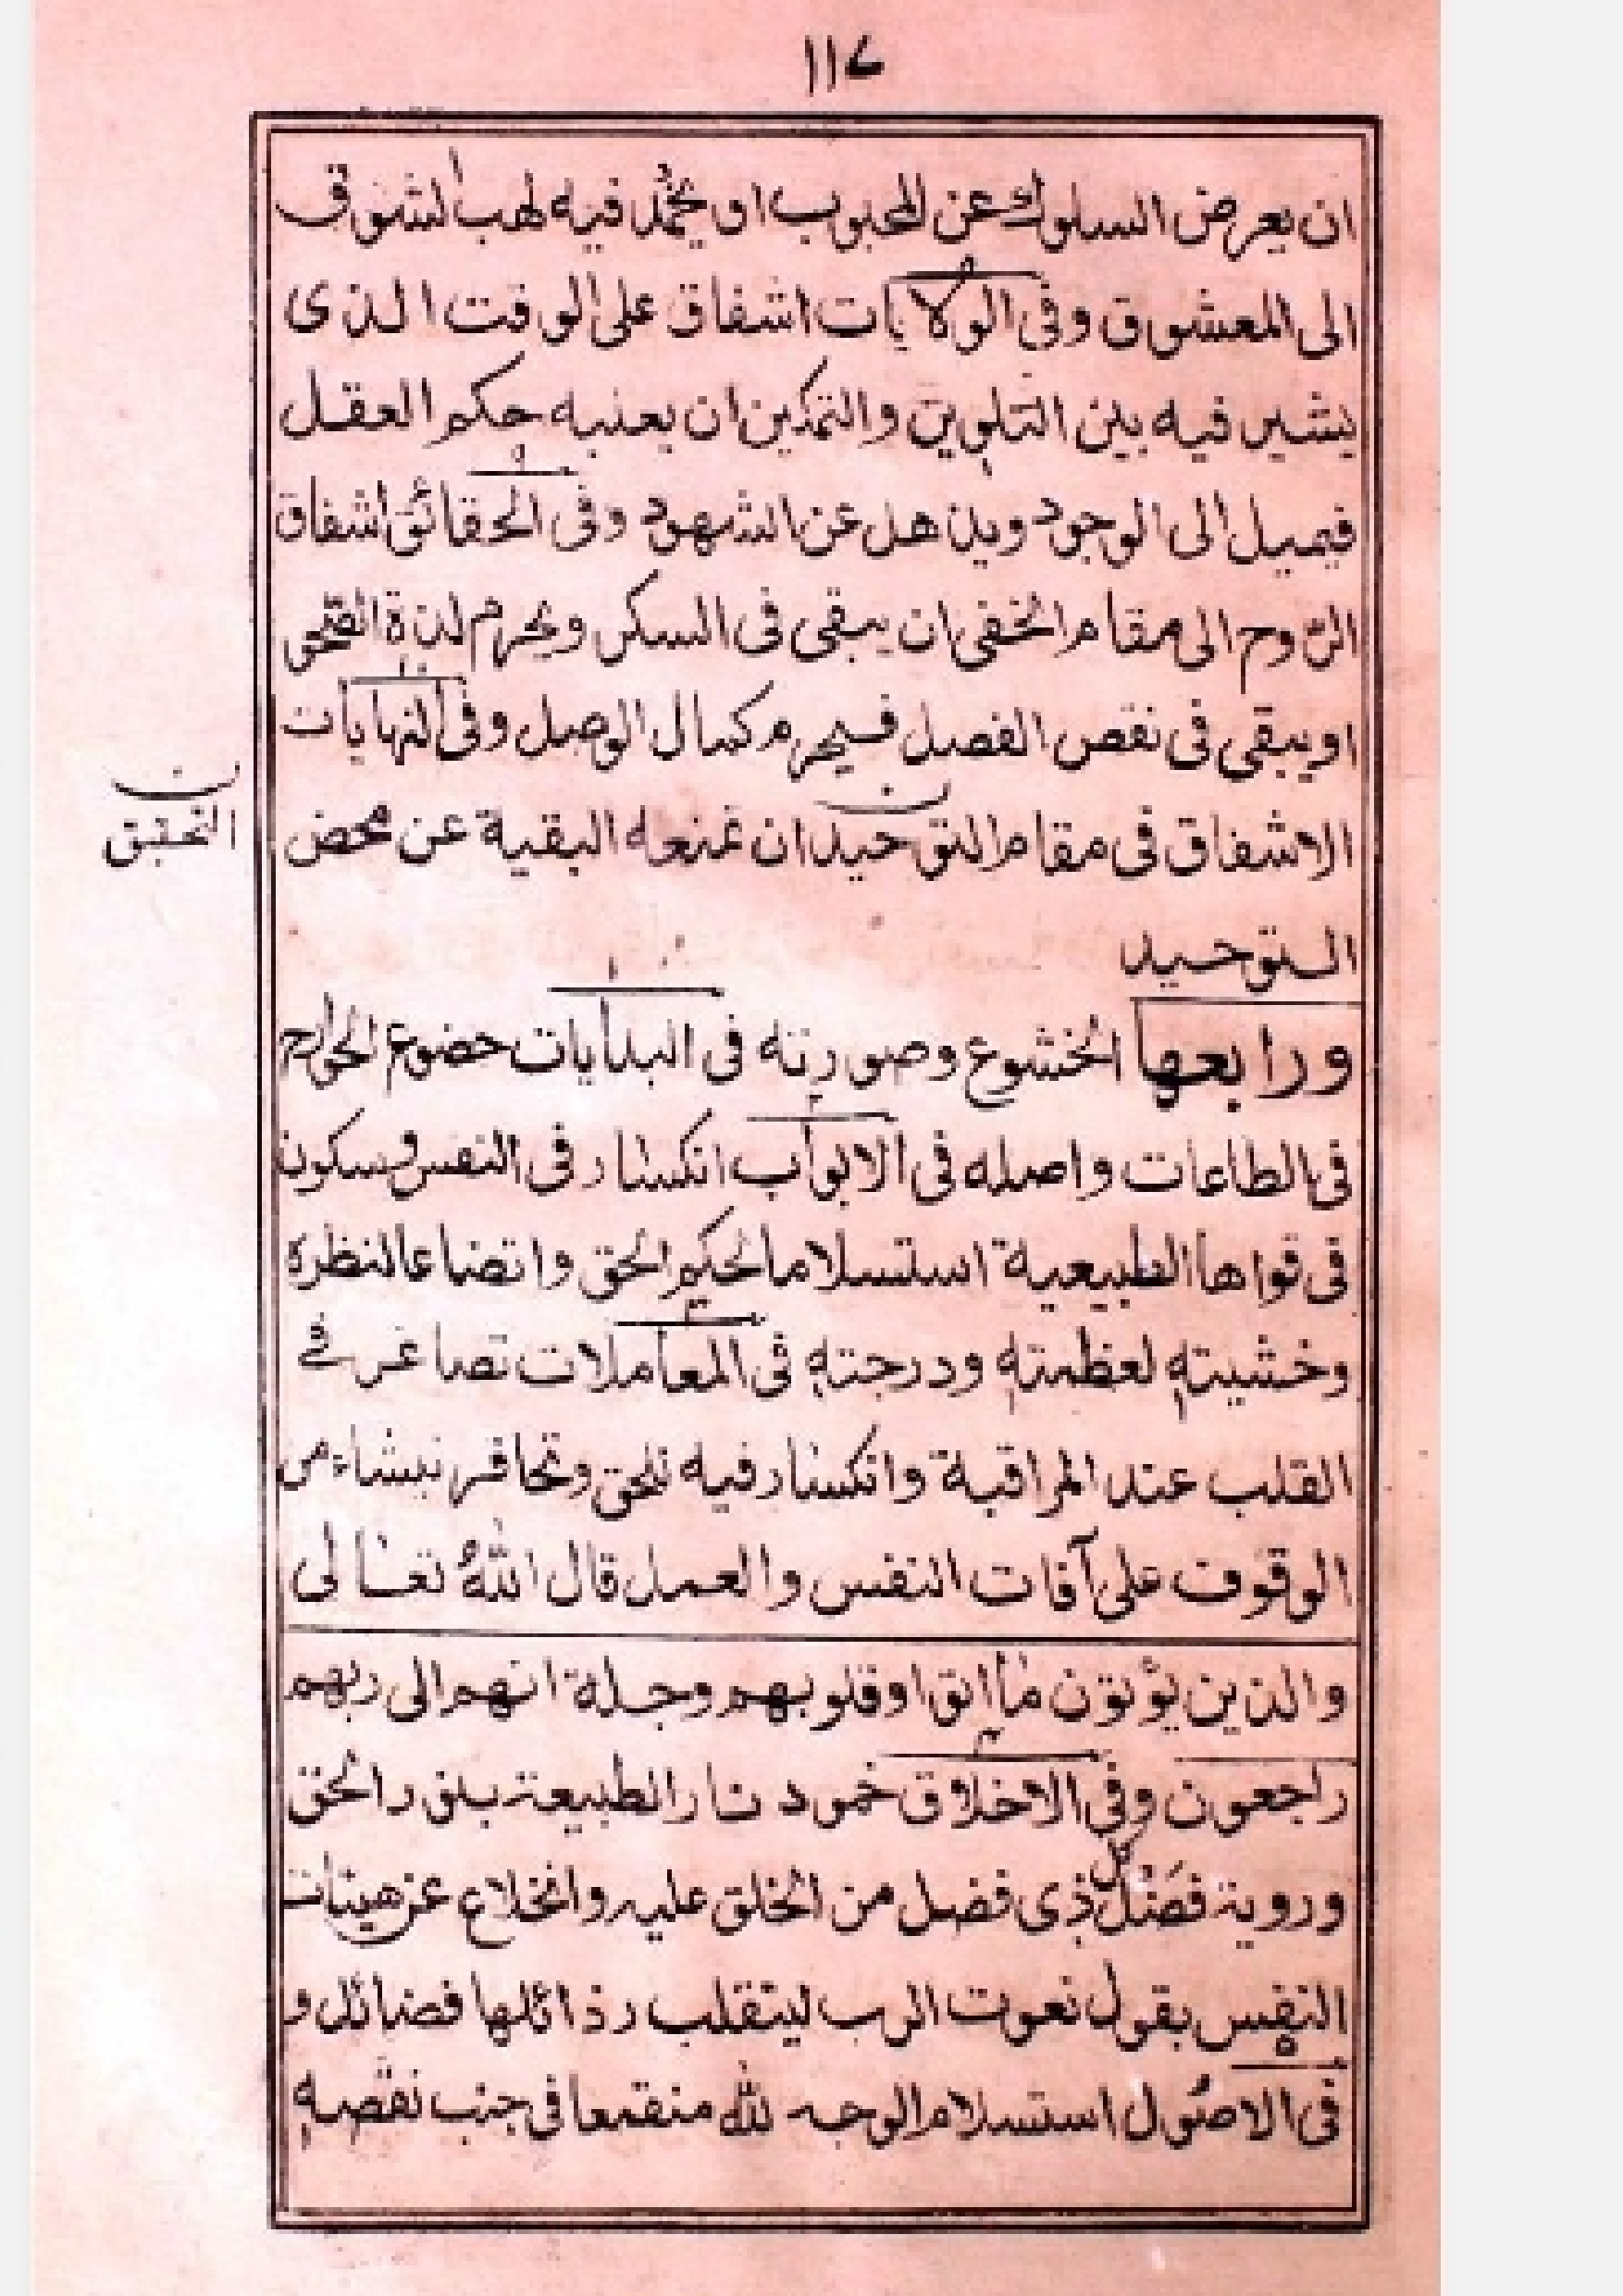 ١١٧
ان يعرض السلوك عن المحبوب او يخمد فيه لهب الشوق
الى المعشوق وفى الولايات اشفاق على الوقت الذى
يشير فيه بين التلوين والتمكين ان يعنبه حكم العقل
فيميل الى الوجود ويذهل عن الشهود وفى الحقائق اشفاق
الروح الى مقام الخفى ان يبقى فى السكر ويحرم لذة
او يبقى فى نقص الفصل فيحرم كمال الوصل وفى النهايات
الاشفاق فى مقام التوحيد ان تمنعه البقية عن محض
ن
التحقيق
التوحيد
ورابعها الخشوع وصورته فى البدايات خضوع الجوارح
فى الطاعات واصله فى الابواب انكسار فى النفس وسكون
فى قواها الطبيعية استسلاما لحكم الحق واتضاعا لنظره
وخشيته لعظمته ودرجته فى المعاملات تصاغر فى
القلب عند المراقبة وانكسار فيه للحق من
الوقوف على آفات النفس والعمل قال الله تعالى
والذين يؤتون ما اتوا وقلوبهم وجلة انهم الى ربهم
راجعون وفى الاخلاق خمود نار الطبيعة بنور الحق
وروية فضل كل ذى فضل من الخلق عليه وانخلاع عن هيئات
النفس بقول نعوت الرب ليتقلب رذائلها فضائل و
فى الاصول استسلام الوجه لله منقمعا فى جنب نقصه